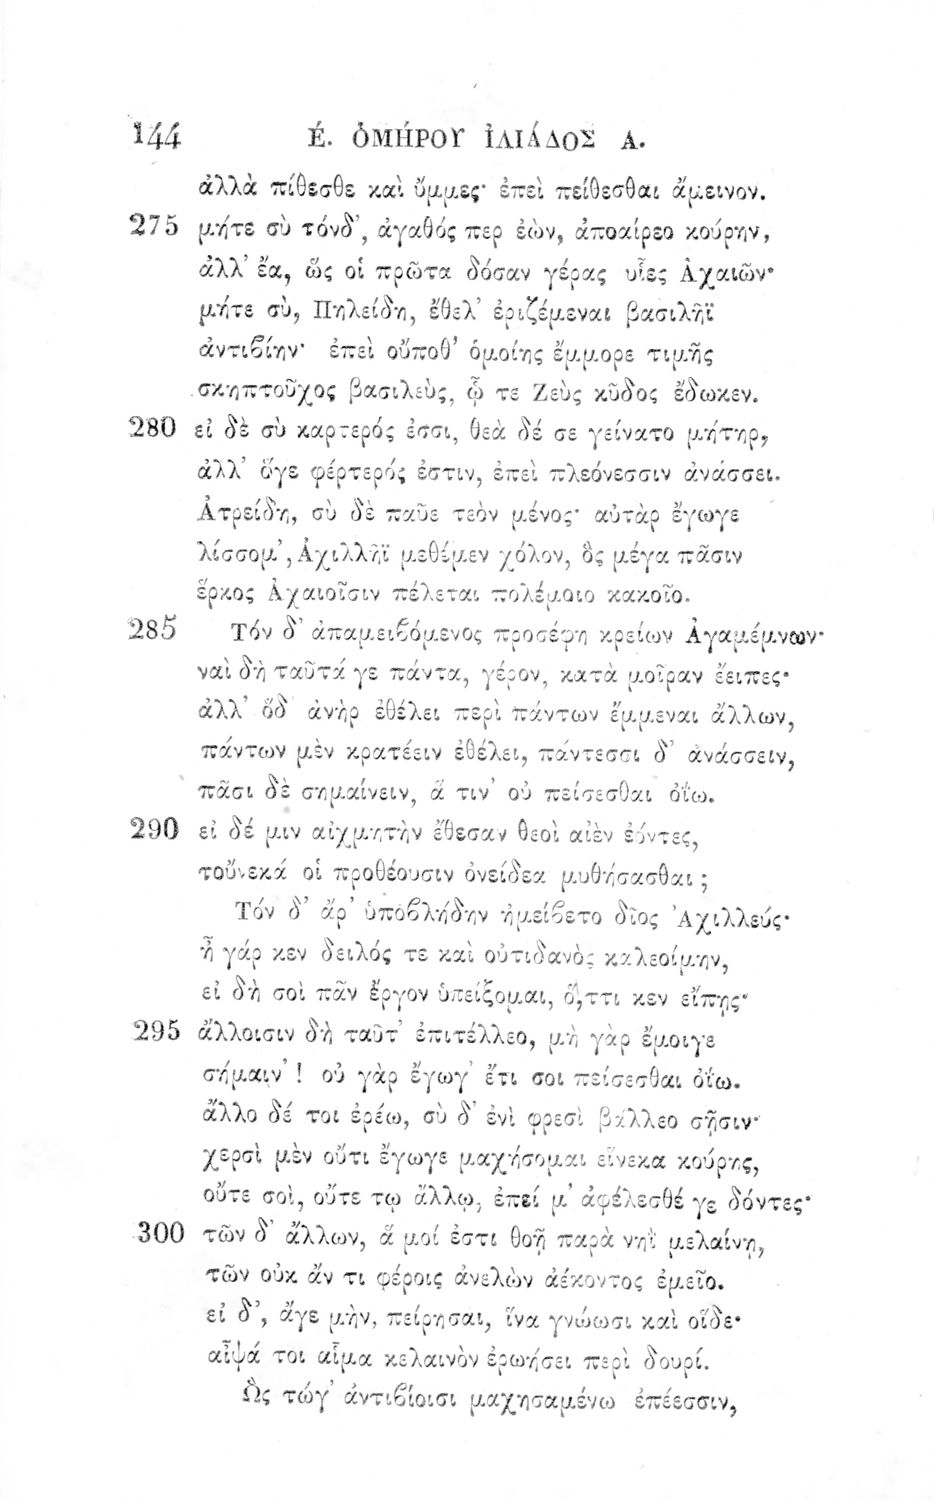 144 Ἐ. ὉΜΉΡΟΥ ἸΛΙΆΔΟΣ Α.
ἀλλὰ πίθεσθε καὶ ὔμμες· ἐπεὶ πείθεσθαι ἄμεινον.
275 μήτε σὺ τόνδ', ἀγαθός περ ἐὼν, ἀποαίρεο κούρην,
ἀλλ' ἔα, ὥς οἱ πρῶτα δόσαν γέρας υἷες Ἀχαιῶν·
μήτε σὺ, Πηλείδη, ἔθελ' ἐριζέμεναι βασιλῆϊ
ἀντιϐίην· ἐπεὶ οὔποθ' ὁμοίης ἔμμορε τιμῆς
σκηπτοῦχος βασιλεὺς, ᾧ τε Ζεὺς κῦδος ἔδωκεν.
280 εἰ δὲ σὺ καρτερός ἐσσι, θεὰ δέ σε γείνατο μήτηρ,
ἀλλ' ὅγε φέρτερός ἐστιν, ἐπεὶ πλεόνεσσιν ἀνάσσει.
Ἀτρείδη, σὺ δὲ παῦε τεὸν μένος· αὐτὰρ ἔγωγε
λίσσομ', Ἀχιλλῆϊ μεθέμεν χόλον, ὃς μέγα πᾶσιν
ἕρκος Ἀχαιοῖσιν πέλεται πολέμοιο κακοῖο.
285 Τόν δ' ἀπαμειϐόμενος προσέφη κρείων Ἀγαμέμνων·
ναὶ δὴ ταῦτά γε πάντα, γέρον, κατὰ μοῖραν ἔειπες·
ἀλλ' ὅδ' ἀνὴρ ἐθέλει περὶ πάντων ἔμμεναι ἄλλων,
πάντων μὲν κρατέειν ἐθέλει, πάντεσσι δ' ἀνάσσειν,
πᾶσι δὲ σημαίνειν, ἅ τιν' οὐ πείσεσθαι ὀΐω.
290 εἰ δέ μιν αἰχμητὴν ἔθεσαν θεοὶ αἰὲν ἐόντες,
τοὔνεκά οἱ προθέουσιν ὀνείδεα μυθήσασθαι ;
Τόν δ' ἄρ' ὑποϐλήδην ἠμείϐετο δῖος Ἀχιλλεύς·
ἦ γάρ κεν δειλός τε καὶ οὐτιδανὸς καλεοίμην,
εἰ δὴ σοὶ πᾶν ἔργον ὑπείξομαι, ὅ,ττι κεν εἴπῃς·
295 ἄλλοισιν δὴ ταῦτ' ἐπιτέλλεο, μὴ γὰρ ἔμοιγε
σήμαιν' ! οὐ γὰρ ἔγωγ' ἔτι σοι πείσεσθαι ὀΐω.
ἄλλο δέ τοι ἐρέω, σὺ δ' ἐνὶ φρεσὶ βάλλεο σῇσιν·
χερσὶ μὲν οὔτι ἔγωγε μαχήσομαι εἵνεκα κούρης,
οὔτε σοὶ, οὔτε τῳ ἄλλῳ, ἐπεί μ' ἀφέλεσθέ γε δόντες·
300 τῶν δ' ἄλλων, ἅ μοί ἐστι θοῇ παρὰ νηῒ μελαίνῃ,
τῶν οὐκ ἄν τι φέροις ἀνελὼν ἀέκοντος ἐμεῖο.
εἰ δ', ἄγε μὴν, πείρησαι, ἵνα γνώωσι καὶ οἵδε·
αἶψά τοι αἷμα κελαινὸν ἐρωήσει περὶ δουρί.
Ὣς τώγ' ἀντιϐίοισι μαχησαμένω ἐπέεσσιν,